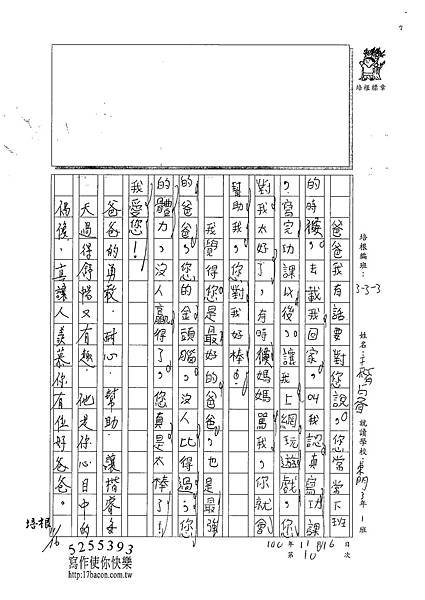 培根標章
培根編班：3-3-3
姓名：王楷睿
就讀學校：東門3年1班
100年11月16日
第10次
爸爸我有話要對您說。您常常下班
的時候，去載我回家，叫我認真寫功課
，寫完功課以後，讓我上網玩遊戲，您
對我太好了，有時候媽媽罵我，你就會
幫助我，你對我好棒！
我覺得您是最好的爸爸，也是最強
的爸爸，您的金頭腦，沒人比得過，您
的體力，沒人贏得了，您真是太棒了！
我愛您！
爸爸的勇敢、耐心、幫助，讓楷睿每
天過得舒暢又有趣，他是你心目中的
偶像，真讓人羨慕你有位好爸爸。
培根 11/16
5255393
寫作使你快樂
http://17bacon.com.tw/